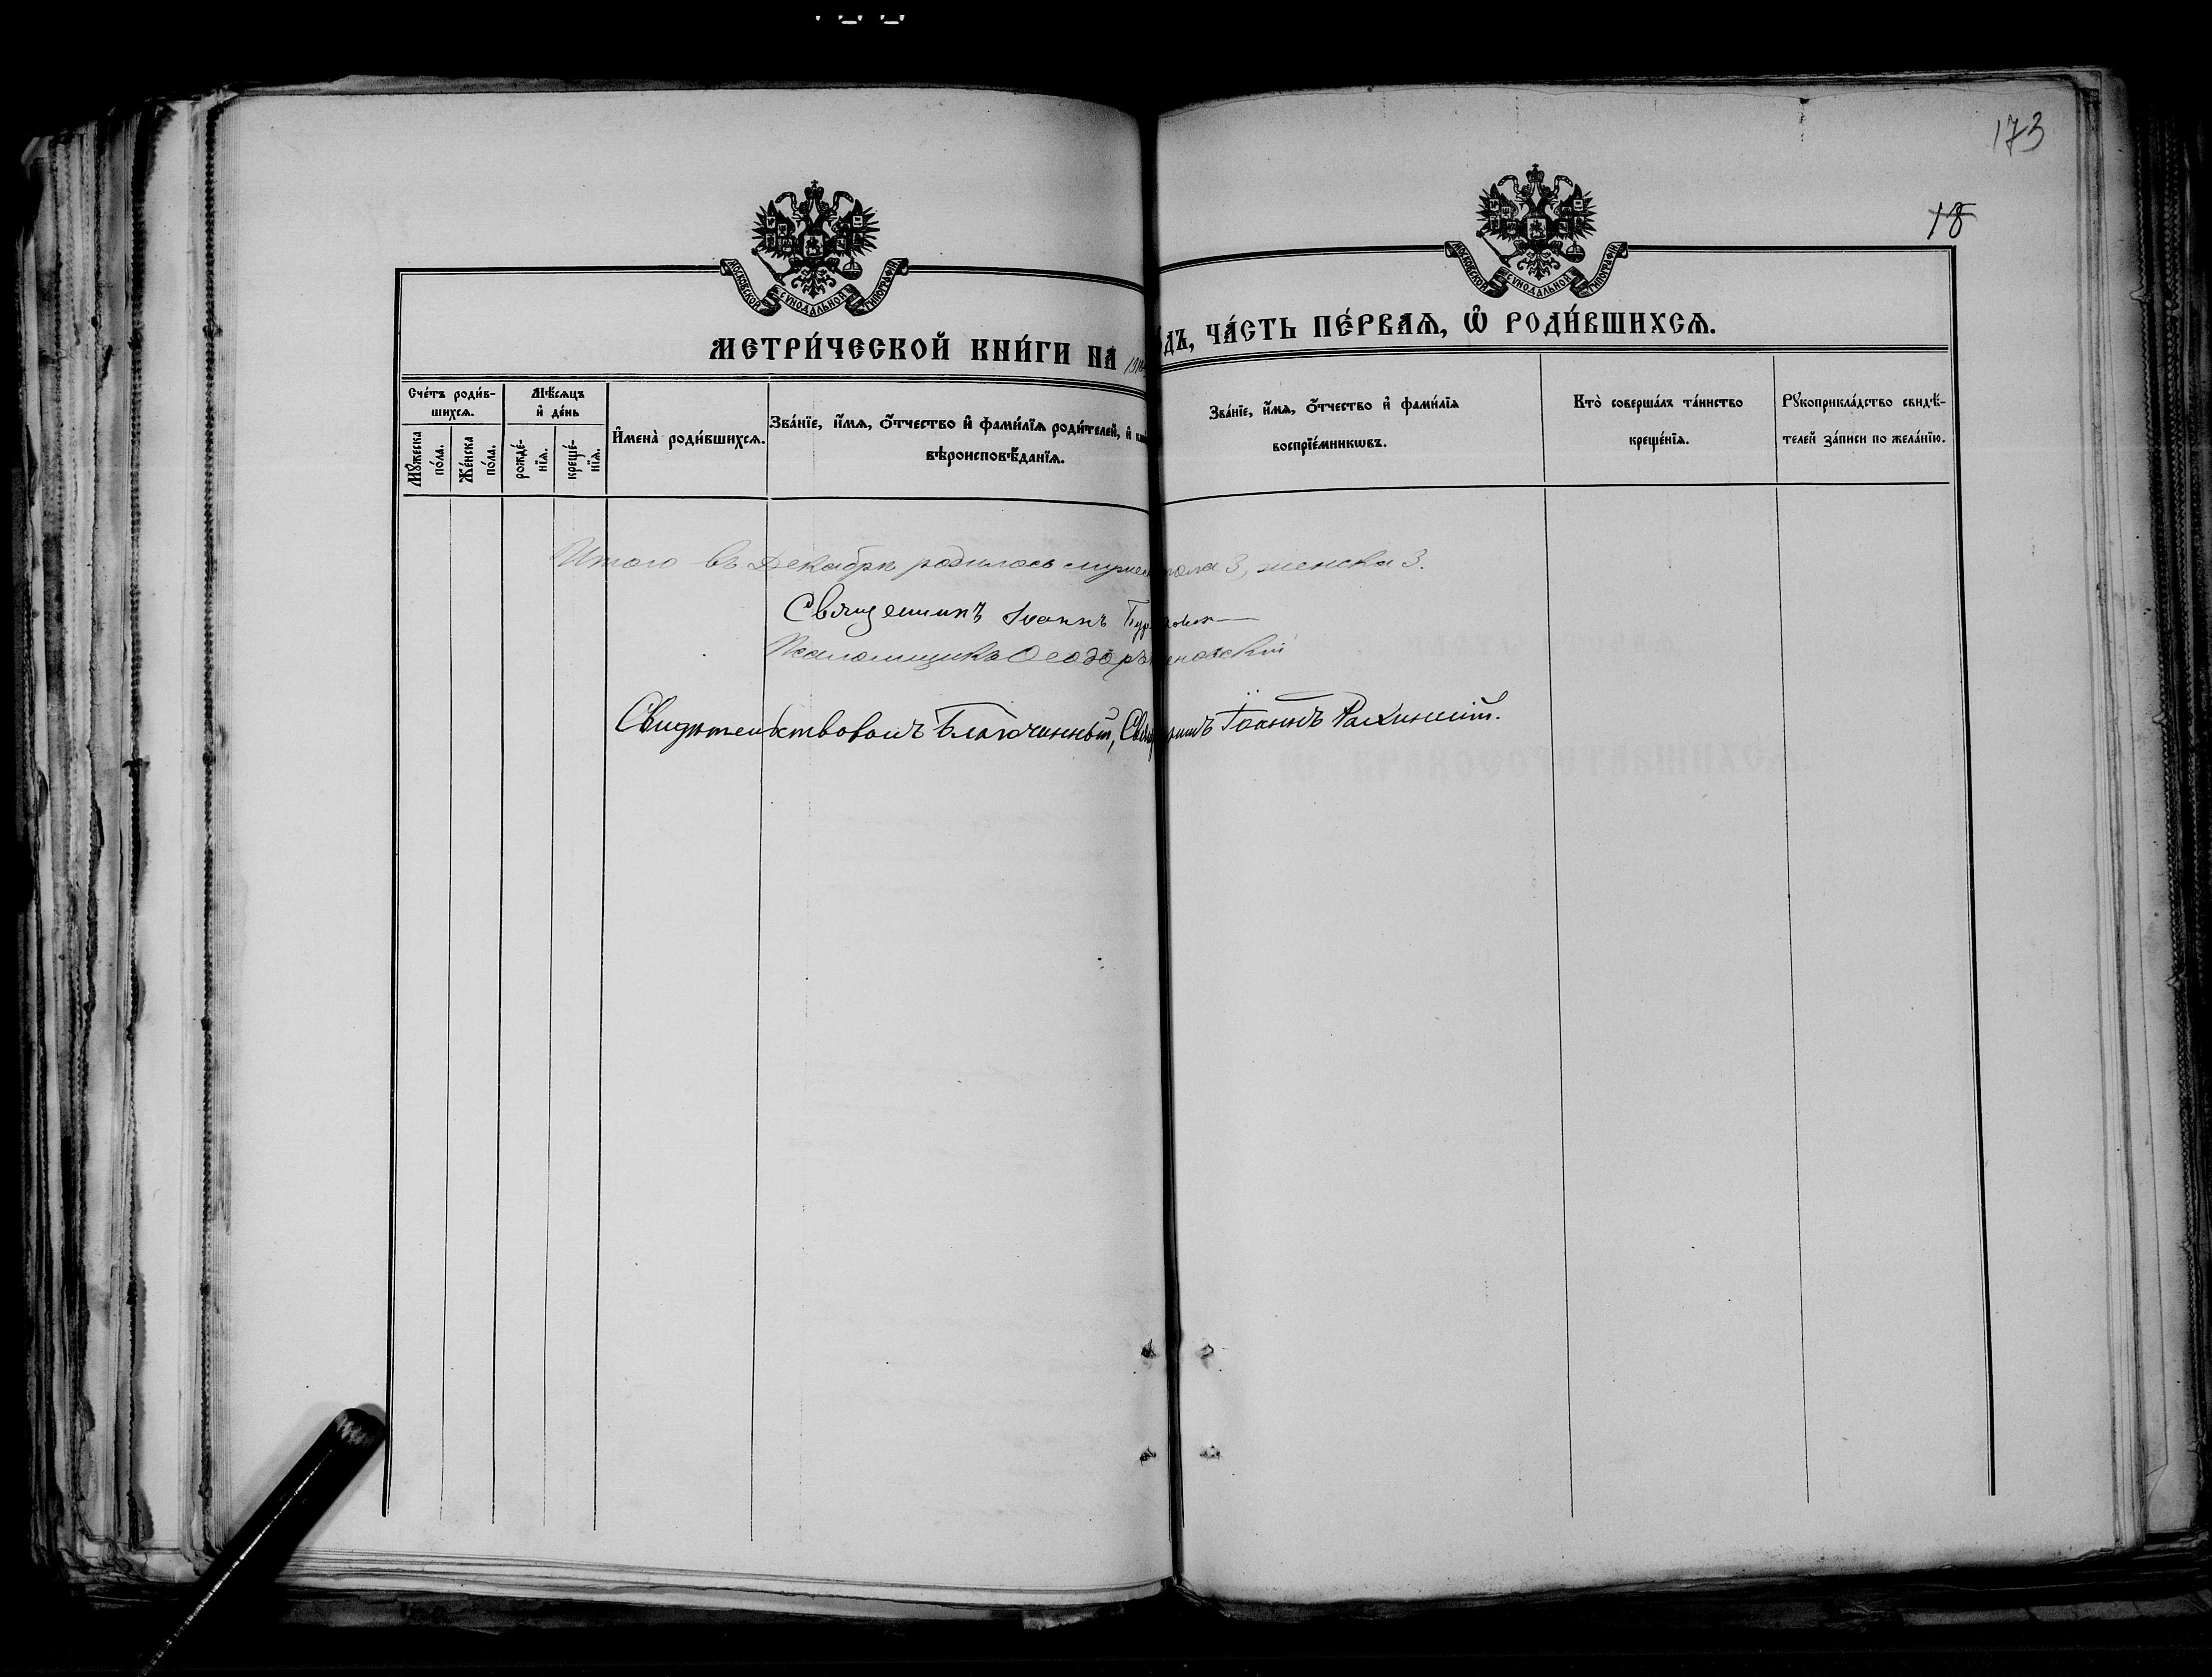 173
18
МОСКОВСКОЙ СѴНОДАЛЬНОЙ ТИПОГРАФІИ
МОСКОВСКОЙ СѴНОДАЛЬНОЙ ТИПОГРАФІИ
МЕТРИ́ЧЕСКОЙ КНИ́ГИ НА
ДЪ, ЧА́СТЬ ПЕ́РВАѦ, Ѡ҆ РОДИ́ВШИХСѦ.
Сче́тъ роди́в-
шихсѧ.
Мѣ́сѧцъ
и҆ де́нь
Мꙋ́жеска
по́ла.
Же́нска
по́ла.
рожде́-
нїѧ.
креще́-
нїѧ.
И҆мена̀ роди́вшихсѧ.
Зва́нїе, и҆́мѧ, ѻ҆́тчество и҆ фами́лїѧ роди́телей, и҆
вѣроисповѣ́данїѧ.
Зва́нїе, и҆́мѧ, ѻ҆́тчество и҆ фами́лїѧ
воспрїе́мникѡвъ.
Кто̀ соверша́лъ та́инство
креще́нїѧ.
Рꙋкоприкла́дство свидѣ́-
телей за́писи по жела́нїю.
Итого въ Декабрѣ родилось мужес пола 3, женска 3.
Священникъ Іоаннъ
Псаломщикъ Ѳеодоръ
Свидѣтельствовалъ Благочинный, Священникъ Іоаннъ